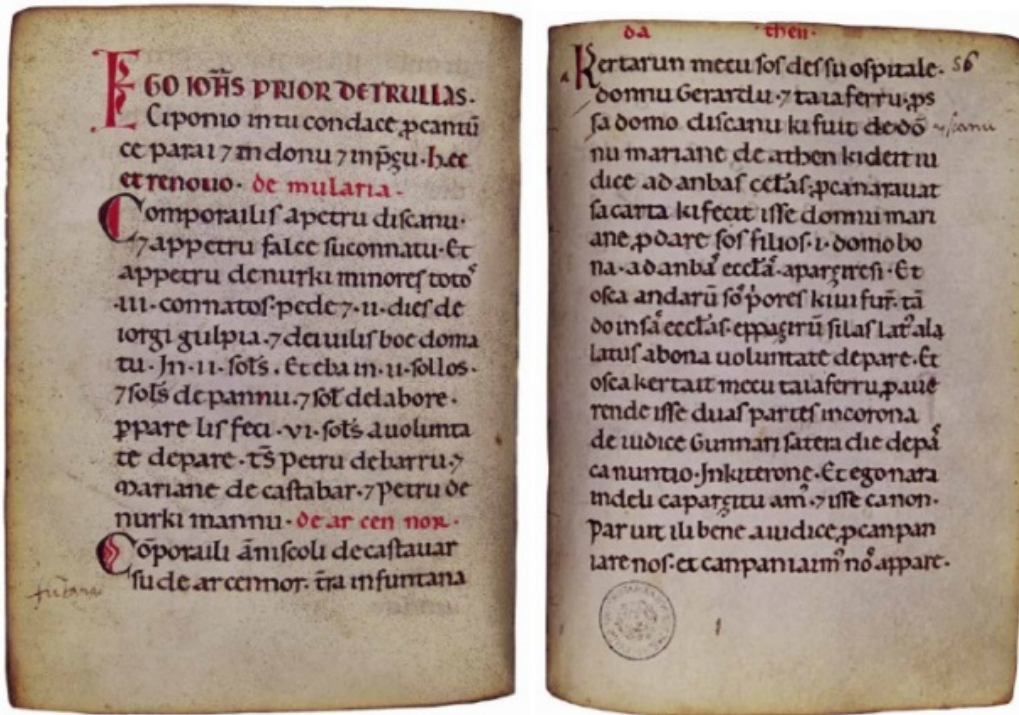 EGO IOH̅S PRIOR DE TRULLAS.
Ci ponio in tu condace, ꝑ cantū
ce parai ⁊ in donu ⁊ in p̄gu. hec
et renouo. de mularia.
Comporailis a petru discanu.
⁊ appetru falce su connatu. Et
appetru de nurki minores totō
.iii. connatos. pede ⁊ .ii. dies de
iorgi gulpia. ⁊ deiuilis boe doma
tu. In .ii. sol̄s. Et eba in .ii. sollos.
⁊ sol̄s de pannu. ⁊ sol̄ de labore.
ꝑ pare lis feci .vi. sol̄s a uolunta
te de pare. t̄s Petru de barru. ⁊
Mariane de castabar. ⁊ Petru de
nurki mannu. de ar cen nor.
Cōporaili ām̄iscoli de castauar
su de arcennor. t̄ra in funtana
da then.
Kertarun mecu sos des su ospitale. 56
donnu Gerardu. ⁊ taiaferru, ꝑs
sa domo discanu ki fuit de dō
nu mariane de athen ki deit iu
dice ad anbas cel̄as, ꝑ ca narauat
sa carta ki fecit isse donnu mari
ane, ꝑ dare sos filios .i. domo bo
na. ad anbā eccl̄ā. a pargiresi. Et
osca andarū sō p̓ores ki ui fur̄ tā
do in sā eccl̄as. eppagirū silas lat̓ ala
latus a bona uoluntate de pare. Et
osca kertait mecu taiaferru, ꝑ aue
rende isse duas partes in corona
de iudice Gunnari satera die de pā
ca nuntio. In kiterone. Et ego nara
indeli ca pargitu am̓. ⁊ isse ca non.
Paruit ili bene a iudice, ꝑ canpan
iare nos. et canpaniaim̓ nō appare.